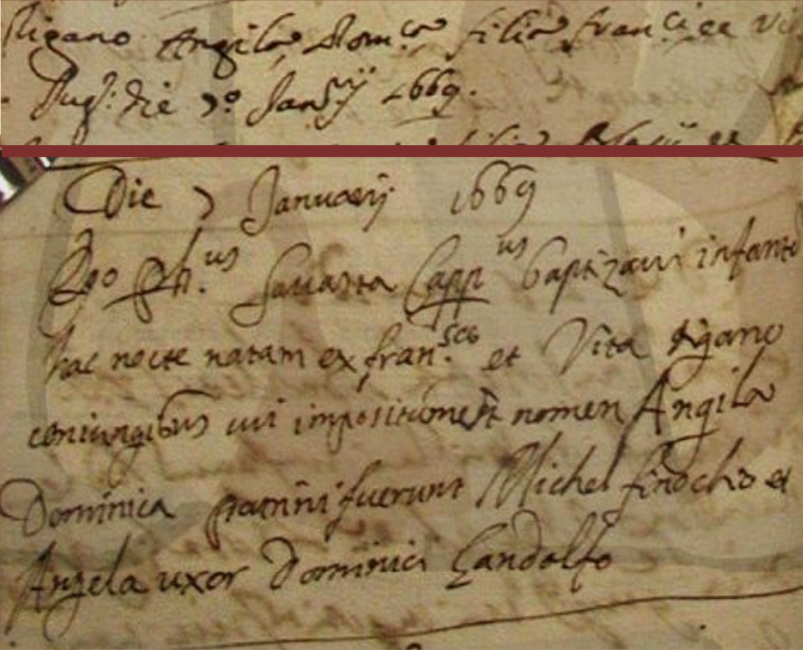 Rigano Angila Dom.ca filia Francisce Vi
Bapt: die 7.o Jan.rij 1669.
Die 7 Januarij 1669
Ego Ph.us Savasta Capp.us baptizavi infante
hac nocte natam ex fran.sco et Vita Rigano
coniungibus cui impositum est nomen Angila
Dominica patrini fuerunt Michel finochio et
Angela uxor Dominici Gandolfo